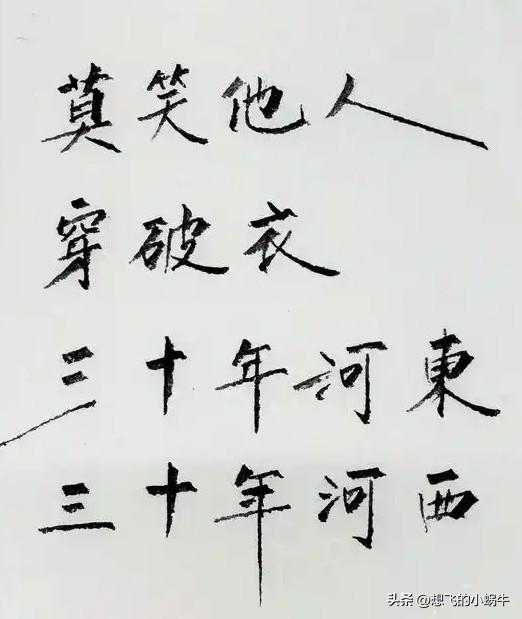 莫笑他人
穿破衣
三十年河東
三十年河西
头条 @想飞的小蜗牛